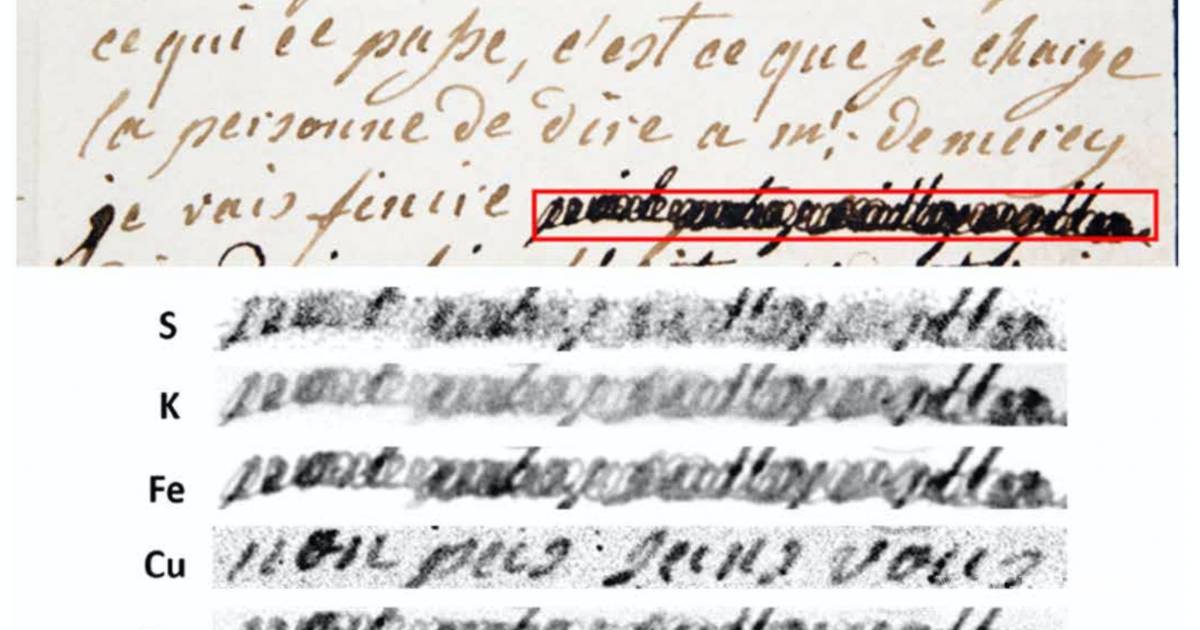 ce qui ce passe, c'est ce que je charge
la personne de dire a mr. de mercy
je vais finire
S
K
Fe
Cu non pas sans vous